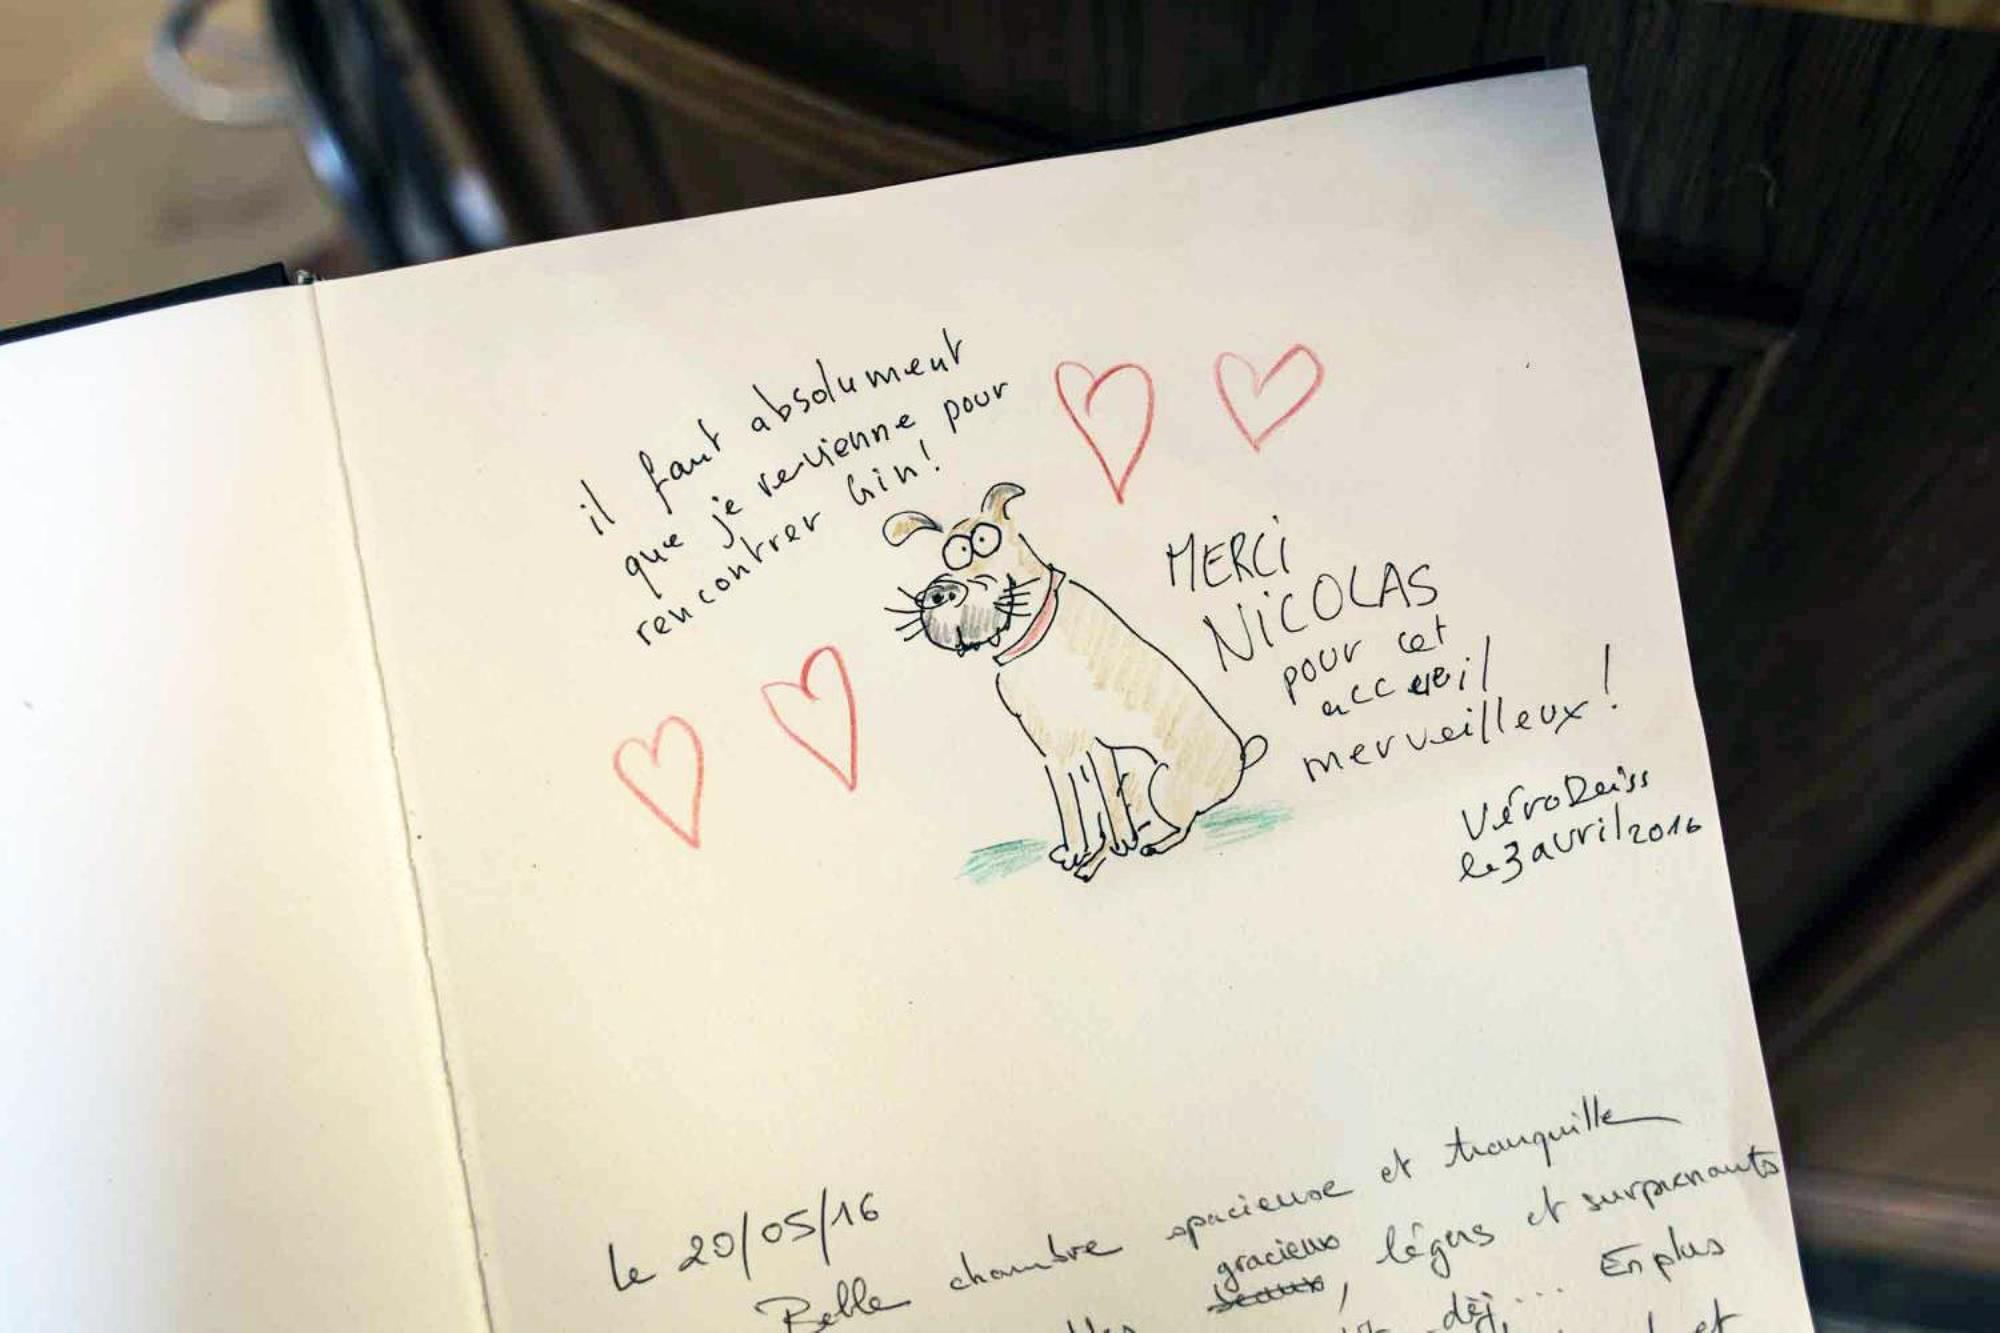 il faut absolument
que je revienne pour
rencontrer Gin!
MERCI
NICOLAS
pour cet
accueil
merveilleux !
Véro Deiss
le 3 avril 2016
le 20/05/16
Belle chambre spacieuse et tranquille
gracieux
beaux, légers et surprenants
déj... En plus
et